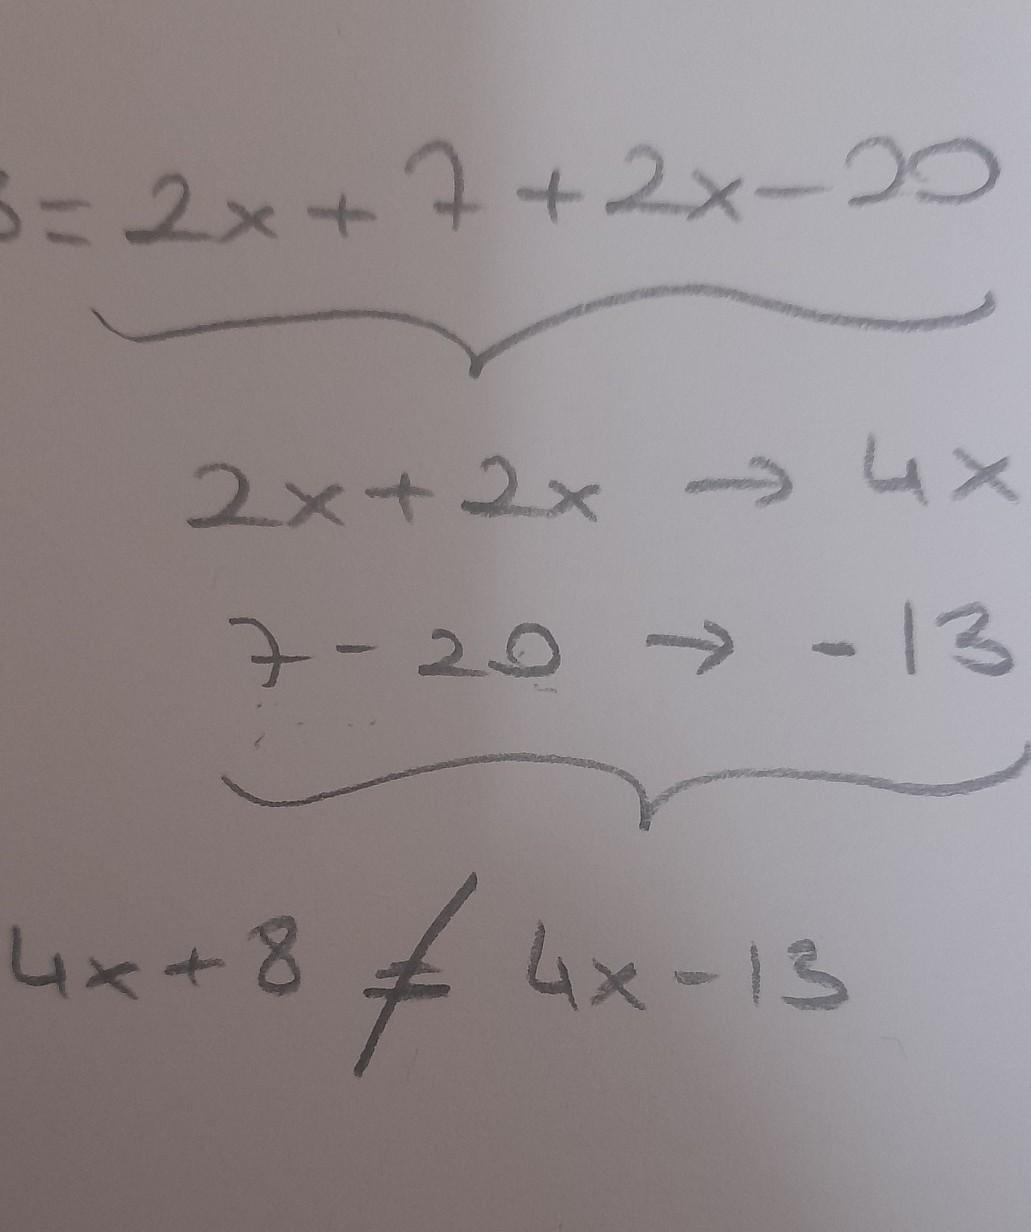 = 2x + 7 + 2x - 20
2x + 2x → 4x
7 - 20 → - 13
4x + 8 ≠ 4x - 13